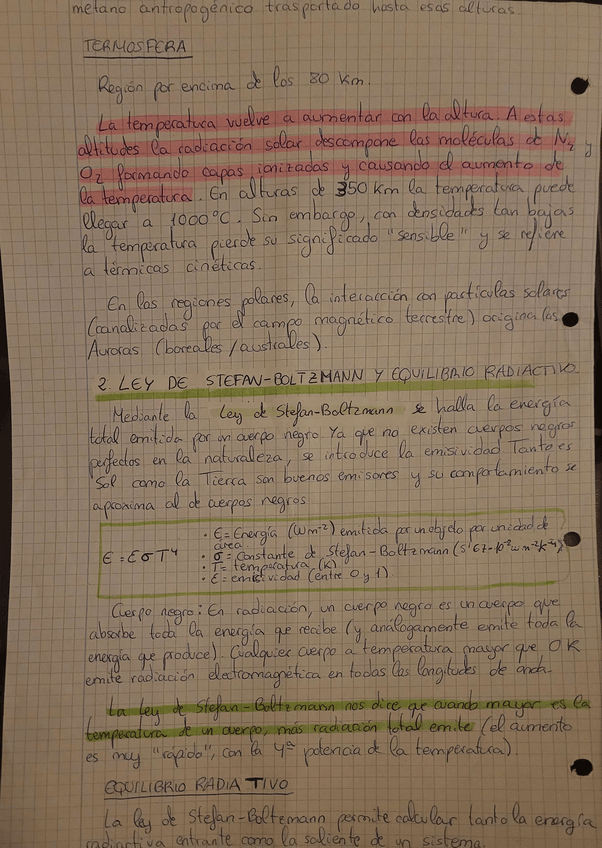 metano antropogénico trasportado hasta esas alturas.
TERMOSFERA
Región por encima de los 80 Km.
La temperatura vuelve a aumentar con la altura. A estas
altitudes la radiación solar descompone las moléculas de N₂ y
O₂ formando capas ionizadas y causando el aumento de
la temperatura. En alturas de 350 km la temperatura puede
llegar a 1000°C. Sin embargo, con densidades tan bajas
la temperatura pierde su significado "sensible" y se refiere
a térmicas cinéticas.
En las regiones polares, la interacción con partículas solares
(canalizadas por el campo magnético terrestre) origina las
Auroras (boreales/australes).
2. LEY DE STEFAN-BOLTZMANN Y EQUILIBRIO RADIACTIVO.
Mediante la Ley de Stefan-Boltzmann se halla la energía
total emitida por un cuerpo negro Ya que no existen cuerpos negros
perfectos en la naturaleza, se introduce la emisividad Tanto es
Sol como la Tierra son buenos emisores y su comportamiento se
aproxima al de cuerpos negros
E = ƐσT⁴
· E = Energía (Wm⁻²) emitida por un objeto por unidad de
area
· σ = Constante de Stefan-Boltzmann (5'67·10⁻⁸ w m⁻²k⁻⁴)
· T = temperatura (K)
· Ɛ = emisividad (entre 0 y 1).
Cuerpo negro: En radiación, un cuerpo negro es un cuerpo que
absorbe toda la energía que recibe (y análogamente emite toda la
energía que produce). Cualquier cuerpo a temperatura mayor que 0K
emite radiación electromagnética en todas las longitudes de onda.
La ley de Stefan-Boltzmann nos dice que cuando mayor es la
temperatura de un cuerpo, más radiación total emite (el aumento
es muy "rápido", con la 4ª potencia de la temperatura).
EQUILIBRIO RADIATIVO
La ley de Stefan-Boltzmann permite calcular tanto la energía
radiactiva entrante como la saliente de un sistema.